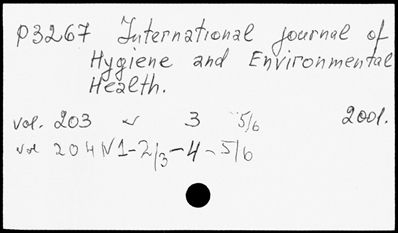 P3267 International journal of
Hygiene and Environmental
Health.
vol. 203 N 3 5/6 2001.
vol 204 N1-2/3-4-5/6